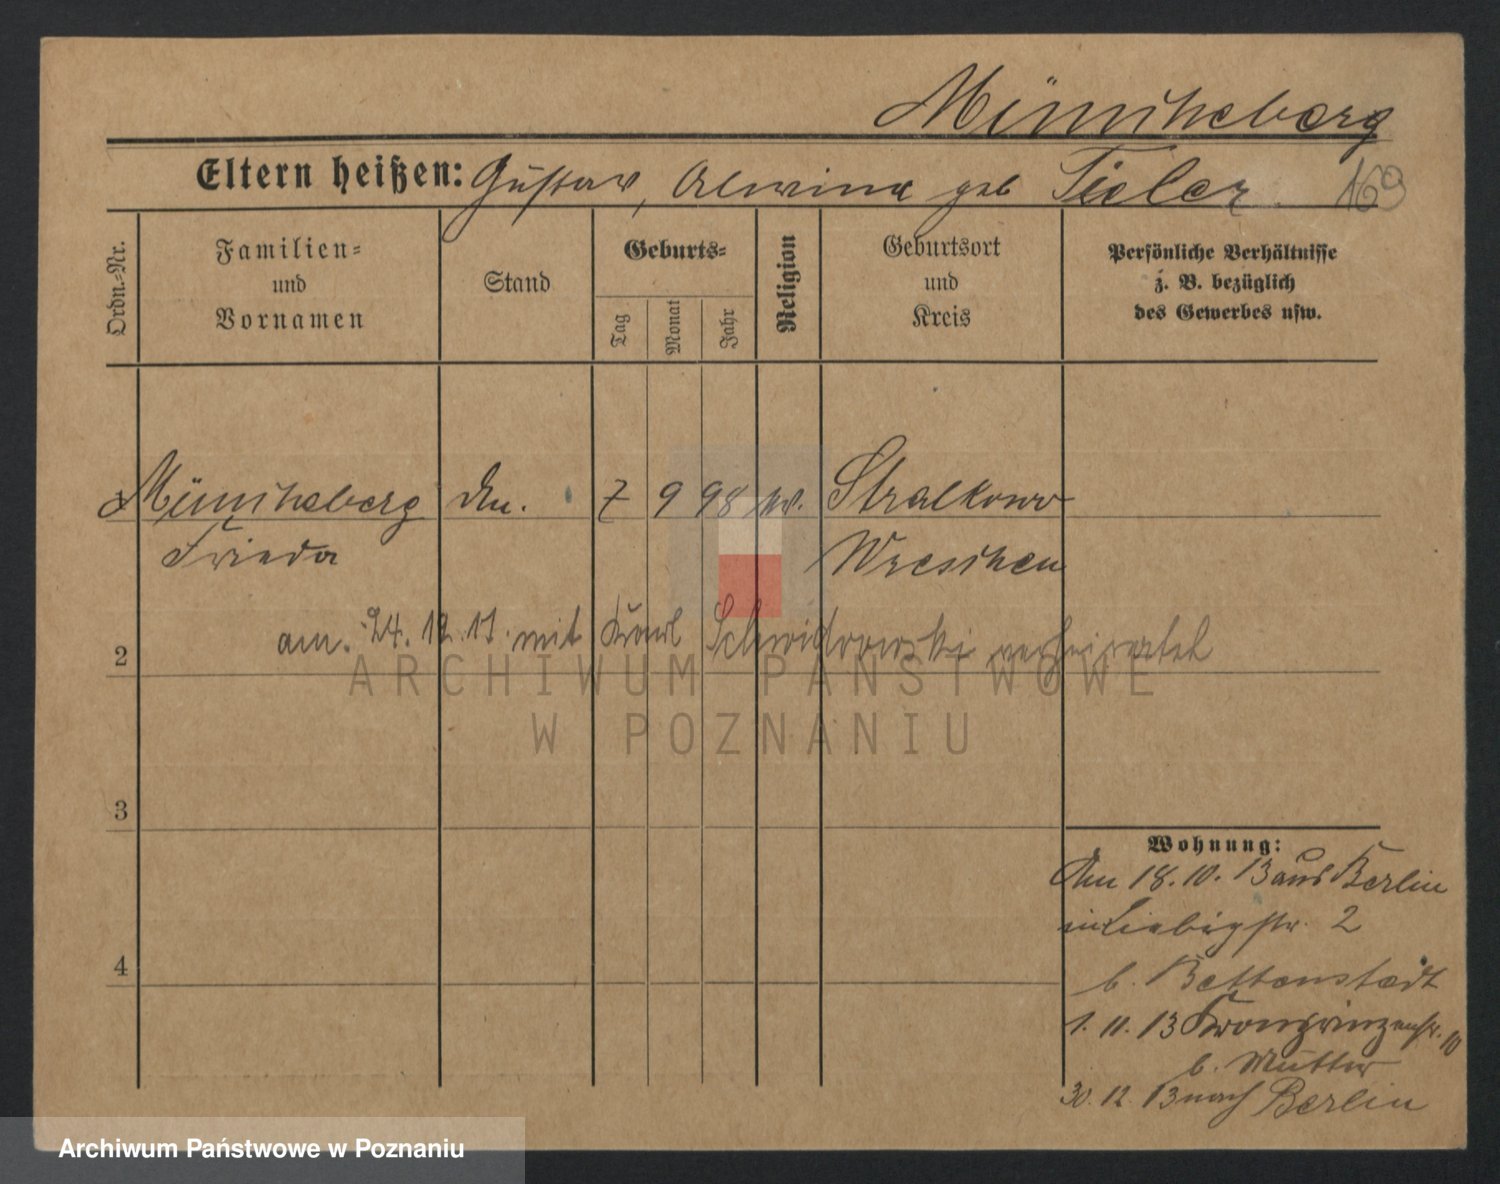 Müncheberg
Eltern heißen: Gustav, Alwina geb Tieler 169
Ordn.-Nr.
Familien-
und
Vornamen
Stand
Geburts-
Tag
Monat
Jahr
Religion
Geburtsort
und
Kreis
Persönliche Verhältnisse
z. B. bezüglich
des Gewerbes usw.
Müncheberg 7 9 98 Stralkowo
Frieda Wreschen
am. 24. 12. 17. mit verheiratet
2
3
4
Wohnung:
Am 18. 10. 13 aus Berlin
in Liebigstr. 2
b. Bettenstaedt
1. 11. 13 Kronprinzenstr. 10
b. Mutter
30. 12. 13 nach Berlin
ARCHIWUM PAŃSTWOWE
W POZNANIU
Archiwum Państwowe w Poznaniu